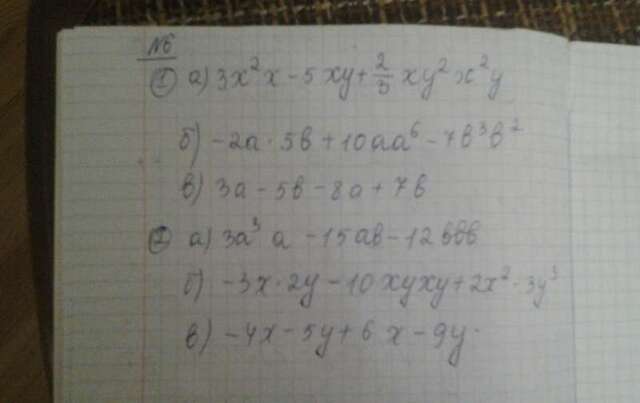 №6
① а) 3x²x - 5xy + 2/3 xy² x²y
б) -2a · 5b + 10aa⁶ - 7b³b²
в) 3a - 5b - 8a + 7b
② а) 3a³ a - 15ab - 12bbb
б) -3x · 2y - 10xyxy + 2x² · 3y³
в) -4x - 5y + 6x - 9y.